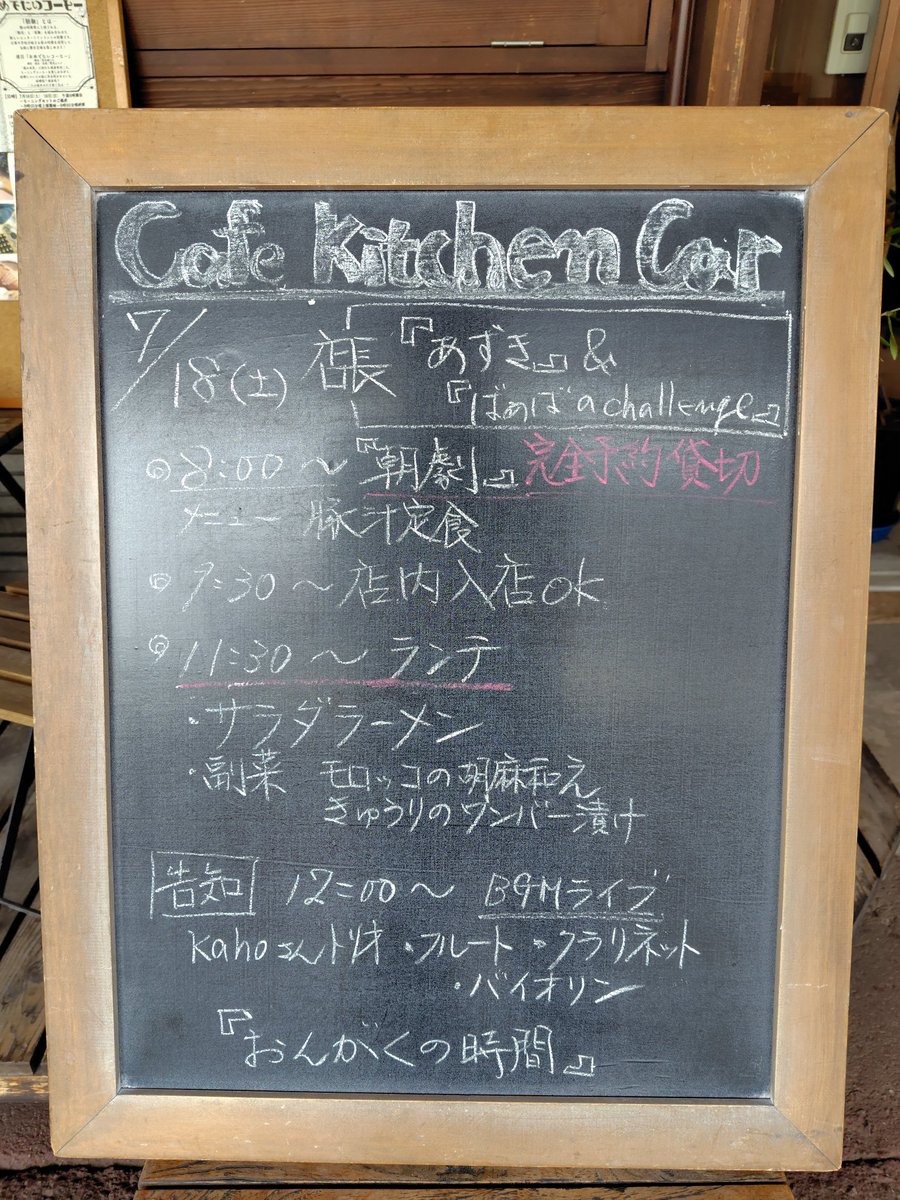 めでたいコーヒー
Cafe Kitchen Car
7/18(土) 店長 『あずき』&
『ばぁば a challenge』
◎8:00〜『朝劇』完全予約貸切
メニュー 豚汁定食
◎9:30〜店内入店OK
◎11:30〜ランチ
・サラダラーメン
・副菜 モロッコの胡麻和え
きゅうりのワンバー漬け
告知 12:00〜 BGMライブ
Kahoさんトリオ・フルート・クラリネット
・バイオリン
『おんがくの時間』